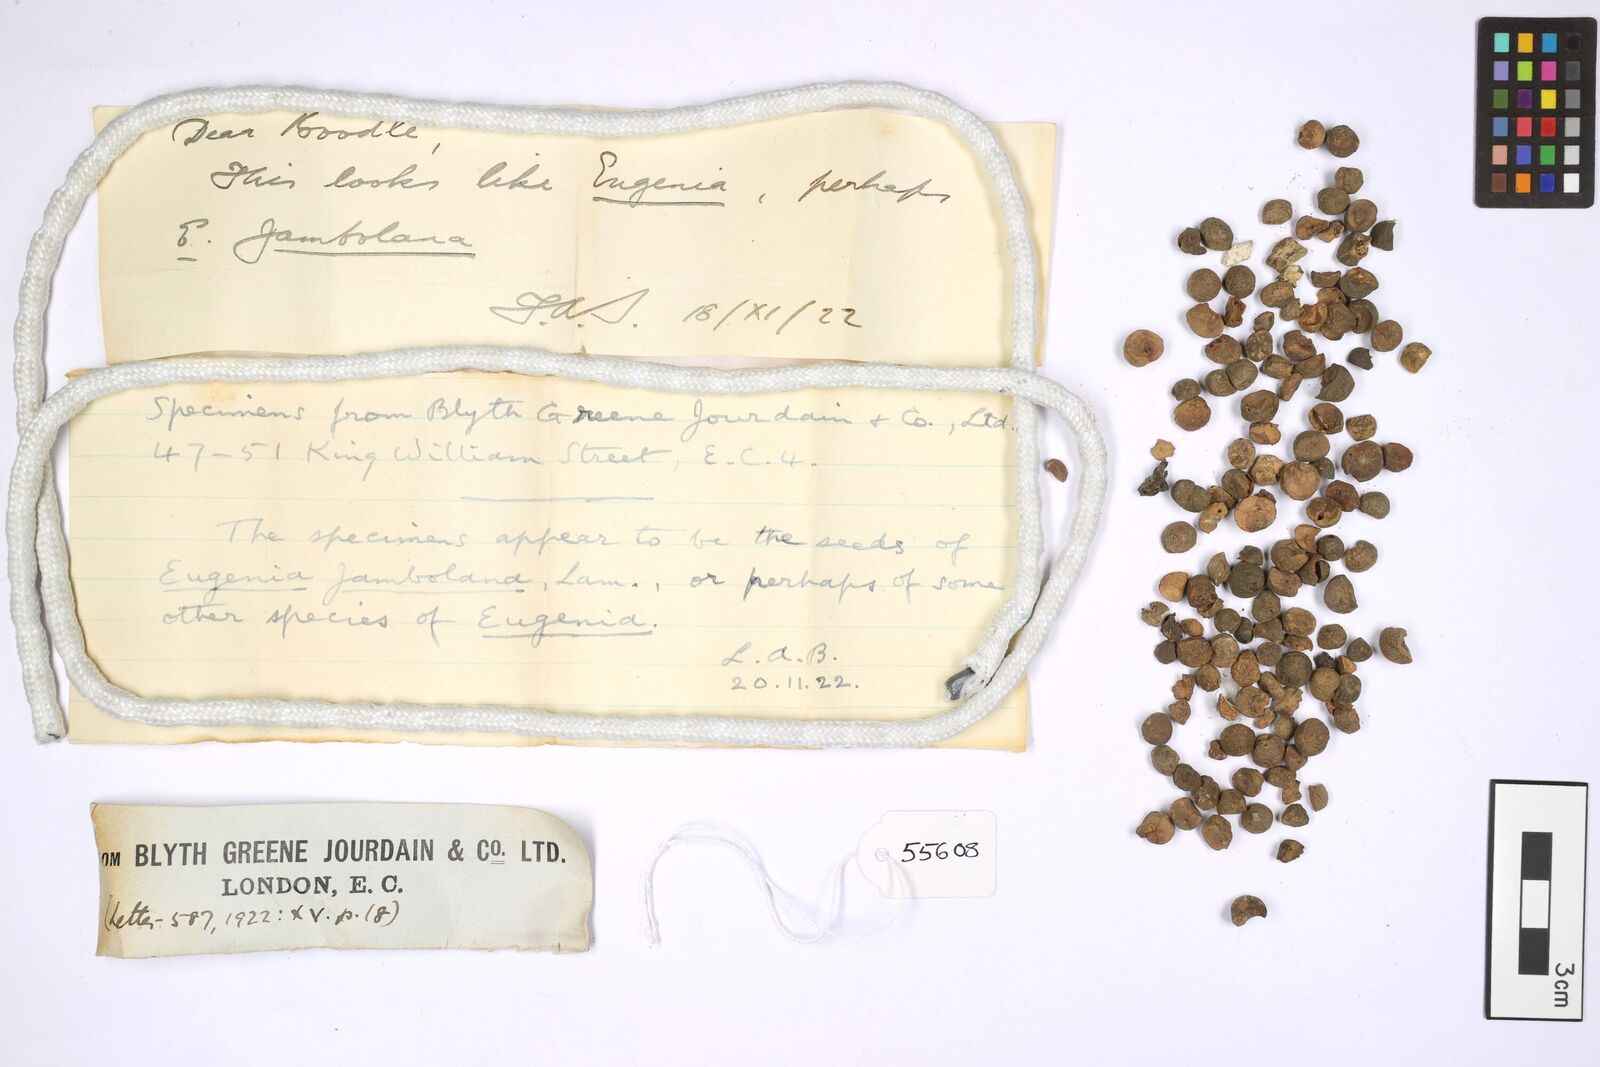 Dear Boodle,
This looks like Eugenia, perhaps
E. Jambolana
18/XI/22
Specimens from Blyth Greene Jourdain & Co., Ltd.
47-51 King William Street, E.C.4.
The specimens appear to be the seeds of
Eugenia Jambolana, Lam., or perhaps of some
other species of Eugenia.
L.A.B.
20.11.22.
OM BLYTH GREENE JOURDAIN & Co. LTD.
LONDON, E. C.
(Letter 587, 1922: XV. p. 18)
55608
3cm